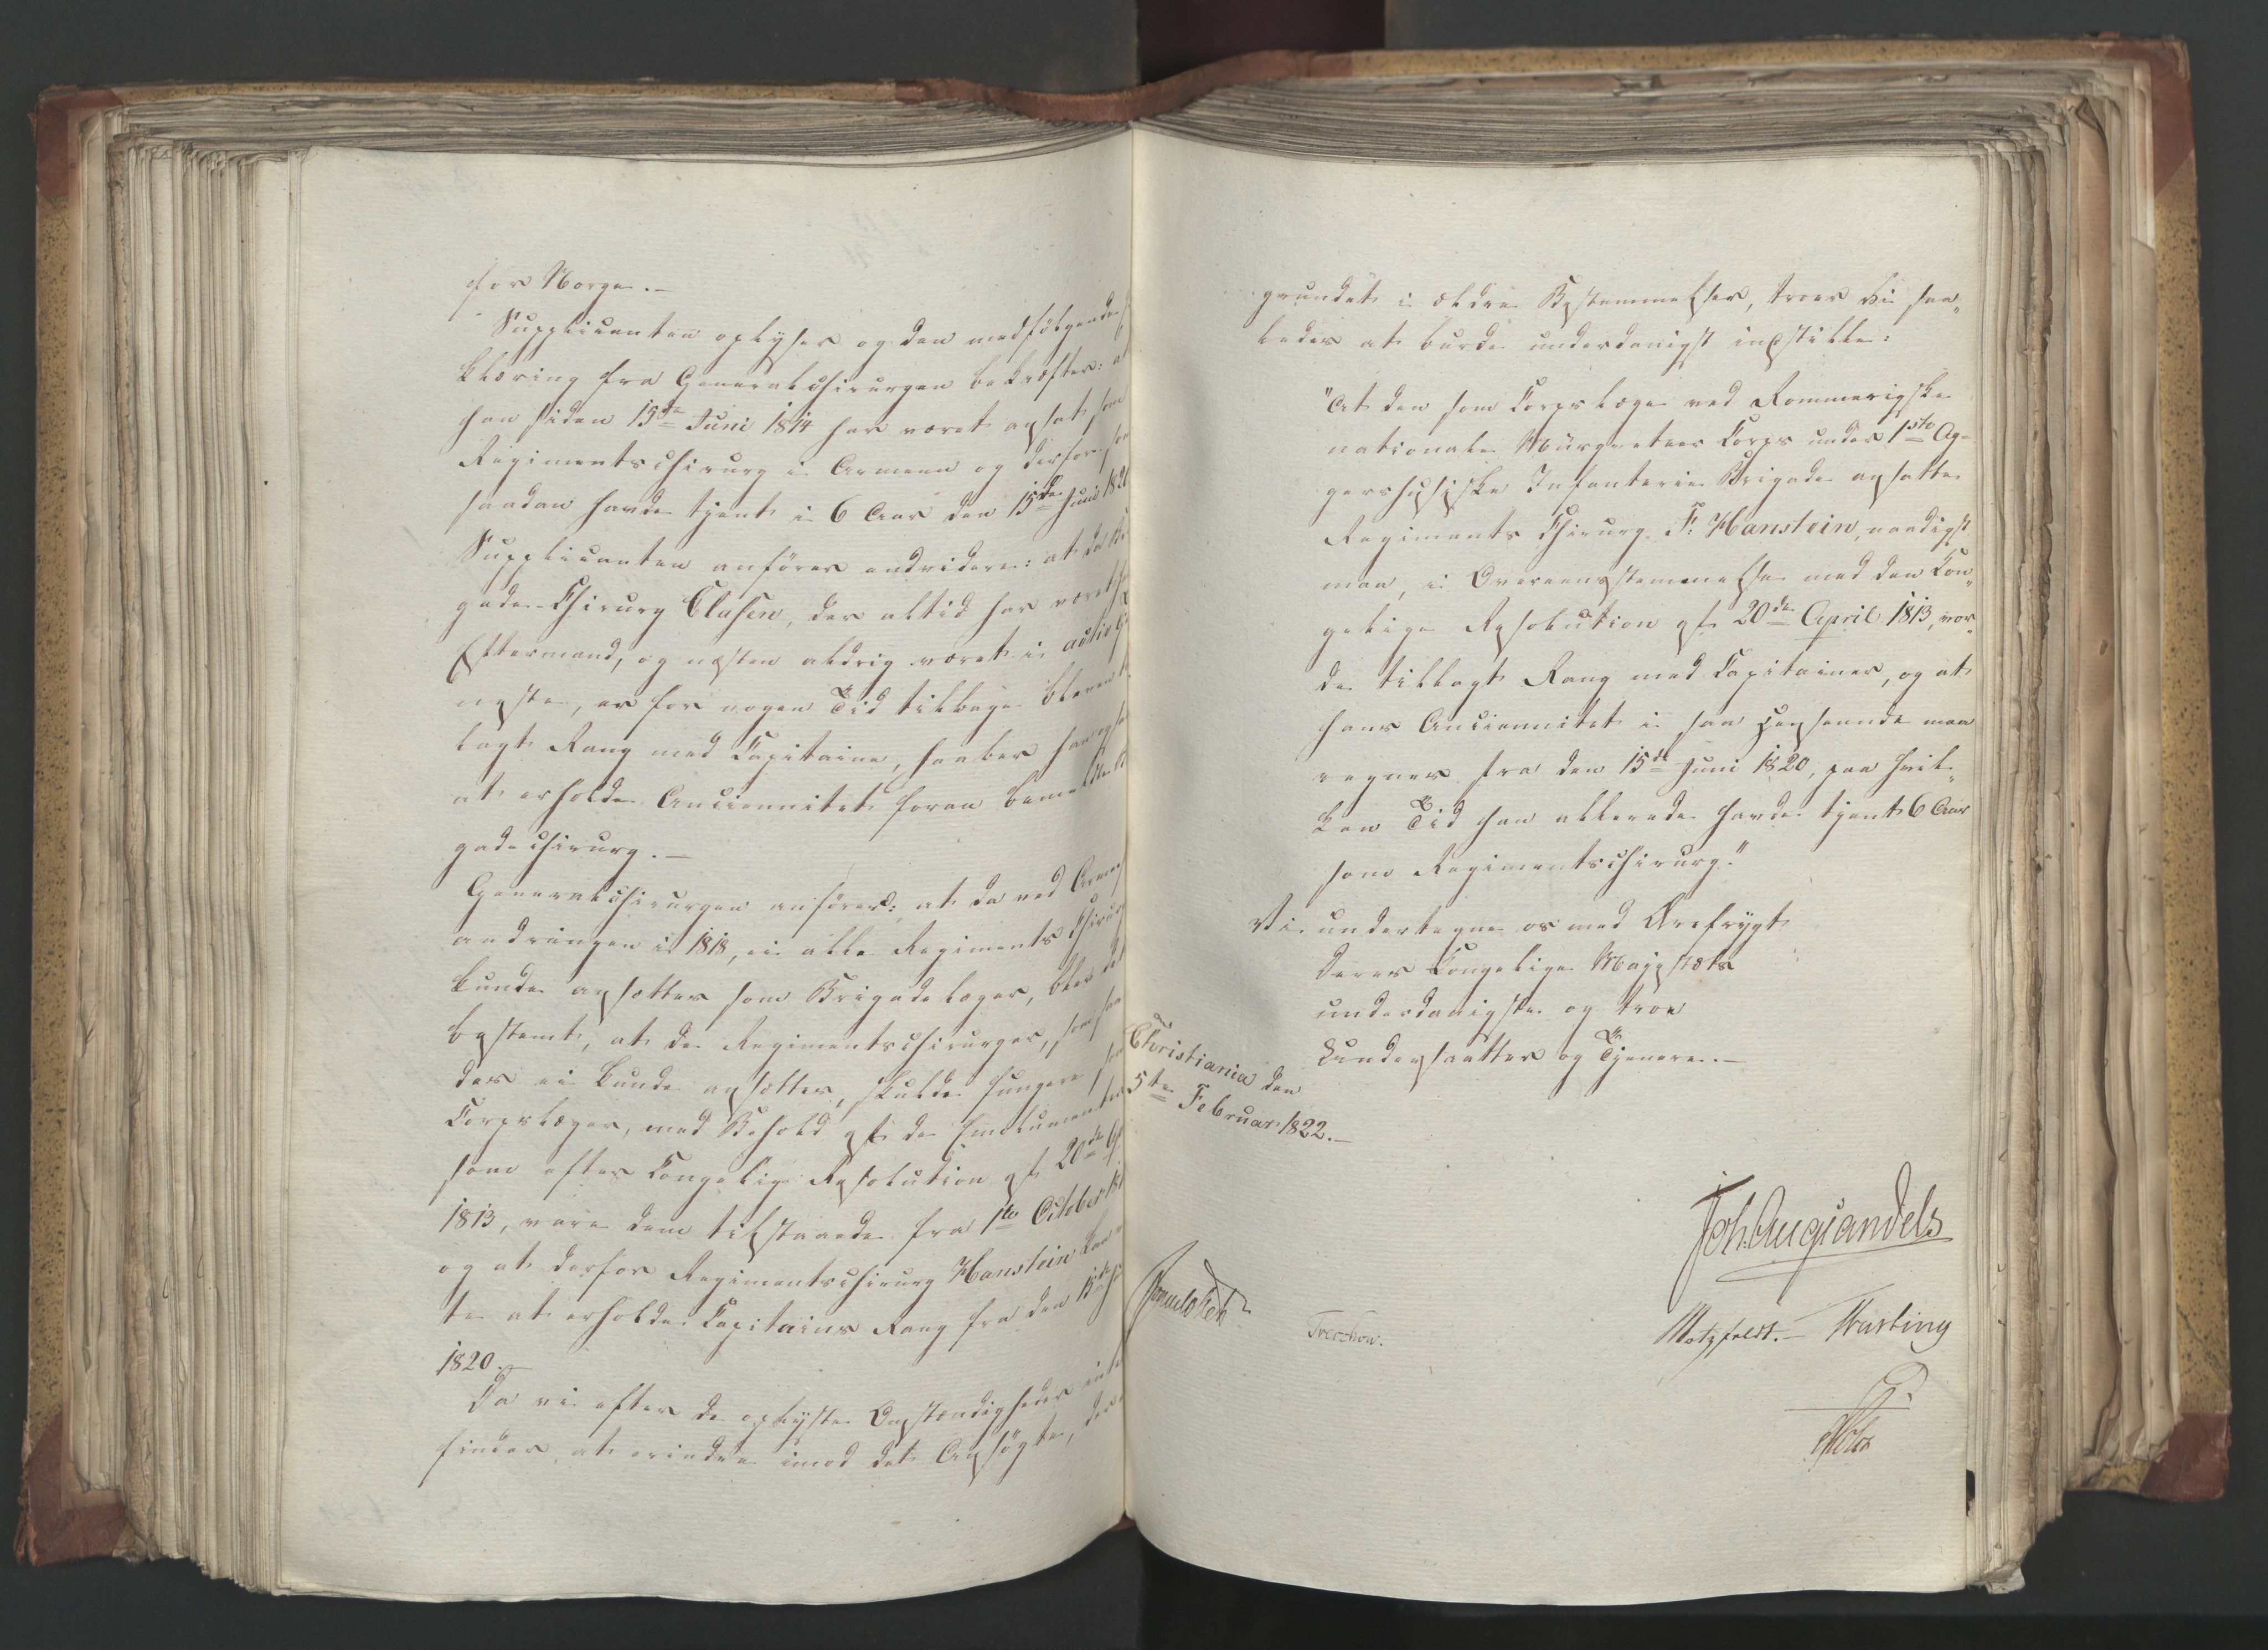 for Norge.–
Supplicanten oplyser og den medfølgende
klæring fra Generalchirurgen bekræfter: at
han siden 15de Juni 1814 har været ansat som
Regimentschirurg i Armeen og derfor, som
saadan havde tjent i 6 Aar den 15de Juni 1820
Supplicanten anfører endvidere: at da Bri
gade-Chirurg Clasen, der altid har været
Eftermand, og næsten aldrig været i activ
neste, er for nogen Tid tilbage bleven
lagt Rang med Capitaine, haaber han
at erholde Anciennitet foran bemeldte Bri
gadechirurg.–
Generalchirurgen anfører: at da ved Armee
andringen i 1818, ei alle Regiments Chirur
kunde ansættes som Brigadelæger, blev det
bestemt, at de Regimentschirurger, som saa
der ei kunde ansættes, skulde fungere som
Corpslæger, med Behold af de Emolumenter
som efter Kongelig Resolution af 20de
1813, vare dem tilstaaede fra 1ste October
og at derfor Regimentschirurg Hanstein
te at erholde Capitains Rang fra den 15de
1820.–
Da vi efter de oplyste Omstændigheder intet
finder at erindre imod det Ansøgte, der
grundet i ældre Bestemmelser, troer Vi saa„
ledes at burde underdanigst indstille:
"At den som Corpslæge ved Rommerigske
nationale Musqueteer Corps under 1ste Ag-
gershusiske Infanterie Brigade ansatte
Regiments Chirurg F: Hanstein, naadigst
maa, i Overeensstemmelse med den Kon„
gelige Resolution af 20de April 1813, vor„
de tillagt Rang med Capitainer, og at
hans Anciennitet i saa Henseende maa
regnes fra den 15de Juni 1820, paa hvil„
ken Tid han allerede havde tjent 6 Aar
som Regimentschirurg."
Vi undertegne os med Ærefrygt
Deres Kongelige Majestæts
underdanigste og troe
Undersaatter og Tjenere.–
Christiania den
5te Februar 1822.–
Joh. Aug Sandels
Sommerhielm
Treschow.
Motzfeldt.– Fasting
Holst